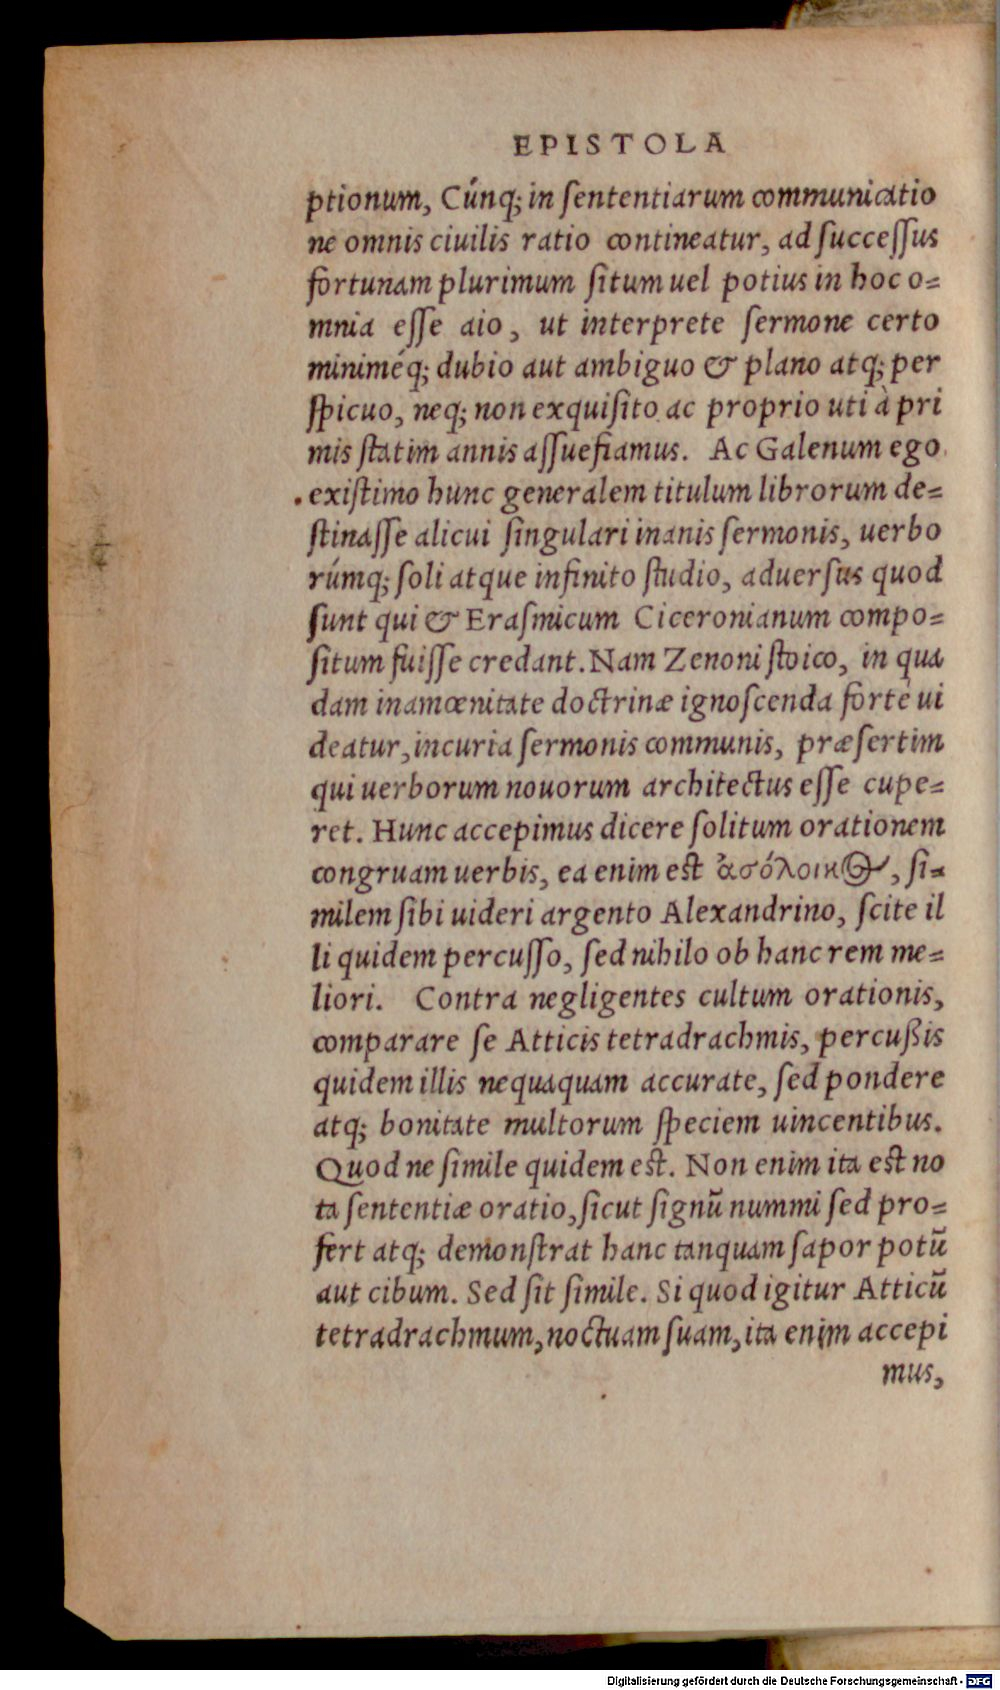 EPISTOLA
ptionum, Cúnq; in ſententiarum communicatio
ne omnis ciuilis ratio contineatur, ad ſucceſſus
fortunam plurimum ſitum uel potius in hoc o=
mnia eſſe aio, ut interprete ſermone certo
miniméq; dubio aut ambiguo & plano atq; per
ſpicuo, neq; non exquiſito ac proprio uti à pri
mis ſtatim annis aſſuefiamus. Ac Galenum ego
exiſtimo hunc generalem titulum librorum de=
ſtinaſſe alicui ſingulari inanis ſermonis, uerbo
rúmq; ſoli atque infinito ſtudio, aduerſus quod
ſunt qui & Eraſmicum Ciceronianum compo=
ſitum fuiſſe credant. Nam Zenoni ſtoico, in qua
dam inamœnitate doctrinæ ignoſcenda fortè ui
deatur, incuria ſermonis communis, præſertim
qui uerborum nouorum architectus eſſe cupe=
ret. Hunc accepimus dicere ſolitum orationem
congruam uerbis, ea enim est ἀσόλοικος, ſi=
milem ſibi uideri argento Alexandrino, ſcite il
li quidem percuſſo, ſed nihilo ob hanc rem me=
liori. Contra negligentes cultum orationis,
comparare ſe Atticis tetradrachmis, percußis
quidem illis nequaquam accurate, ſed pondere
atq; bonitate multorum ſpeciem uincentibus.
Quod ne ſimile quidem est. Non enim ita est no
ta ſententiæ oratio, ſicut ſignū nummi ſed pro=
fert atq; demonſtrat hanc tanquam ſapor potū
aut cibum. Sed ſit ſimile. Si quod igitur Atticū
tetradrachmum, noctuam ſuam, ita enim accepi
mus,
Digitalisierung gefördert durch die Deutsche Forschungsgemeinschaft - DFG